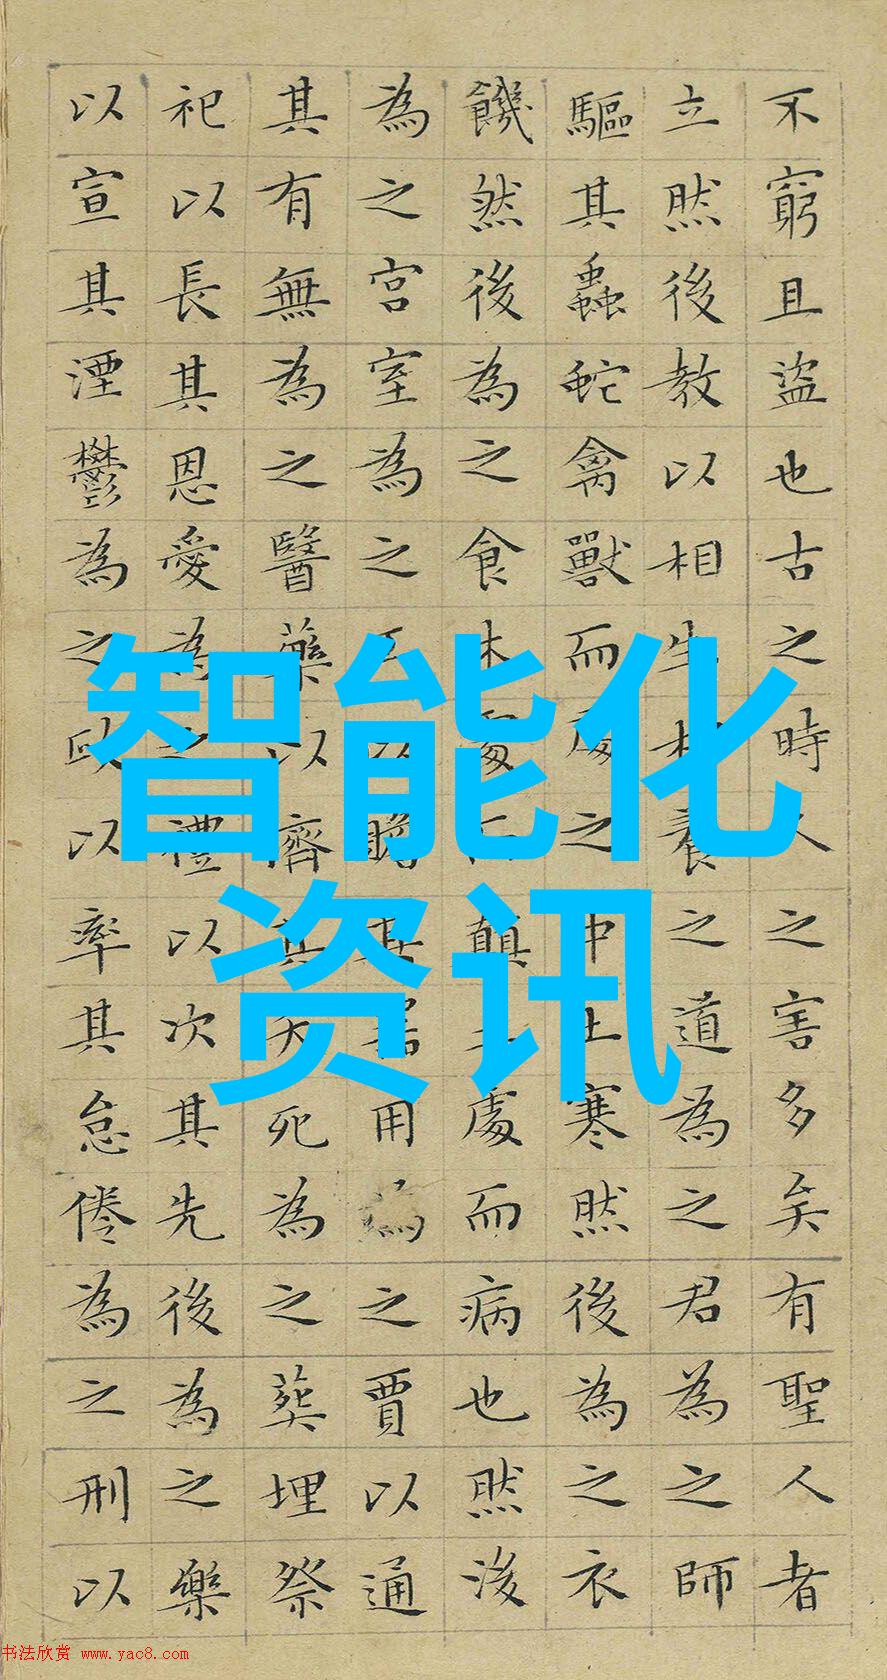 不窮且盜也古之時人之害多矣有聖人者
立然後教以相生相養之道為之君為之師
驅其蟲蛇禽獸而處之中土寒然後為之衣
饑然後為之食木處而顛土處而病也然後
為之宮室為之工以贍其器用為之賈以通
其有無為之醫藥以濟其夭死為之葬埋祭
祀以長其恩愛為之禮以次其先後為之樂
以宣其湮鬱為之政以率其怠倦為之刑以
智能化
资讯
书法欣赏 www.yac8.com